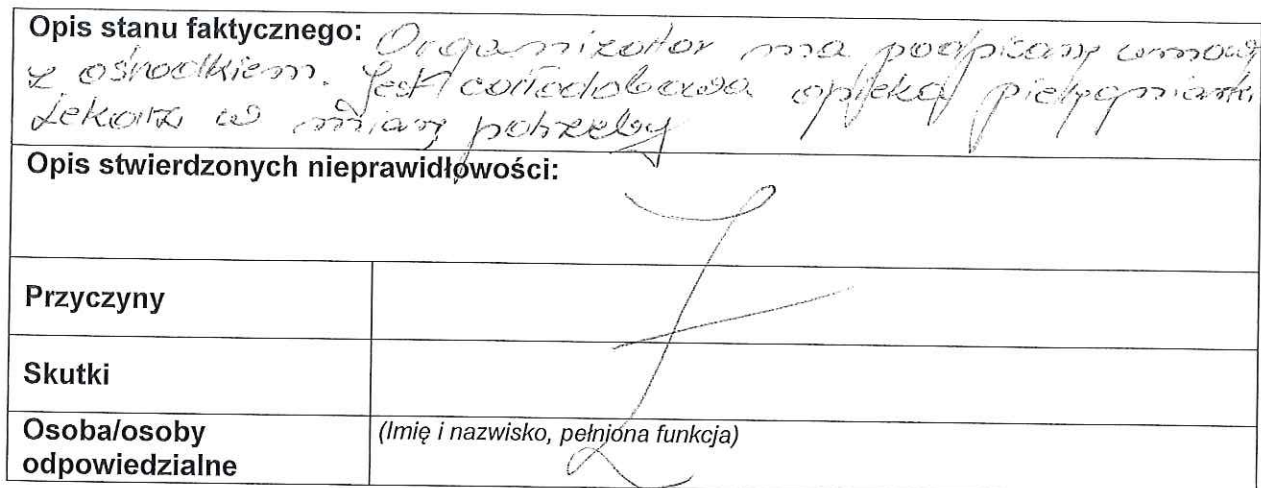 Opis stanu faktycznego: Organizator ma podpisaną umowę
z ośrodkiem. Jest całodobowa opieka pielęgniarki
Lekarz w miarę potrzeby
Opis stwierdzonych nieprawidłowości:
Przyczyny
Skutki
Osoba/osoby
odpowiedzialne
(Imię i nazwisko, pełniona funkcja)